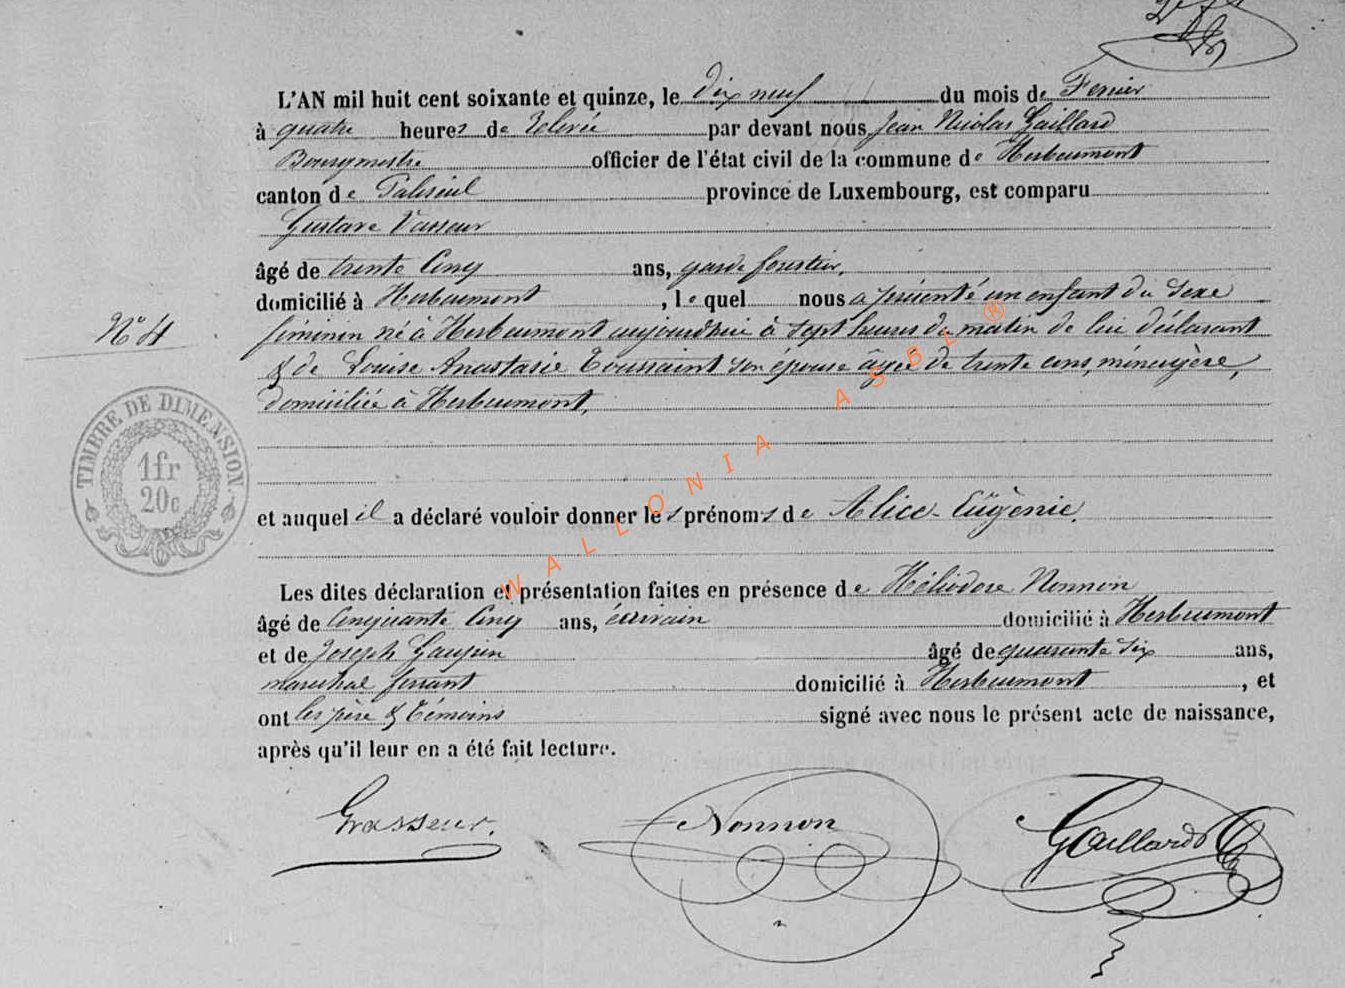 L'AN mil huit cent soixante et quinze, le dix neuf du mois de Fevrier
à quatre heures de Relevée par devant nous Jean Nicolas Gaillard
Bourgmestre officier de l'état civil de la commune de Herbeumont
canton de Paliseul province de Luxembourg, est comparu
Gustave Vasseur
âgé de trente Cinq ans, garde forestier,
domicilié à Herbeumont, lequel nous a présenté un enfant du sexe
N° 4
féminin né à Herbeumont aujourdhui à sept heures du matin de lui déclarant
& de Louise Anastasie Toussaint son épouse âgée de trente ans, ménagère,
domiciliée à Herbeumont,
TIMBRE DE DIMENSION
1fr
20c
et auquel il a déclaré vouloir donner les prénoms de Alice-Eugènie.
Les dites déclaration et présentation faites en présence de Héliodore Nonnon
âgé de Cinquante Cinq ans, écrivain domicilié à Herbeumont
et de Joseph âgé de quarante six ans,
marechal ferrant domicilié à Herbeumont, et
ont les père & témoins signé avec nous le présent acte de naissance,
après qu'il leur en a été fait lecture.
Nonnon
Gaillard
WALLONIA ASBL ®